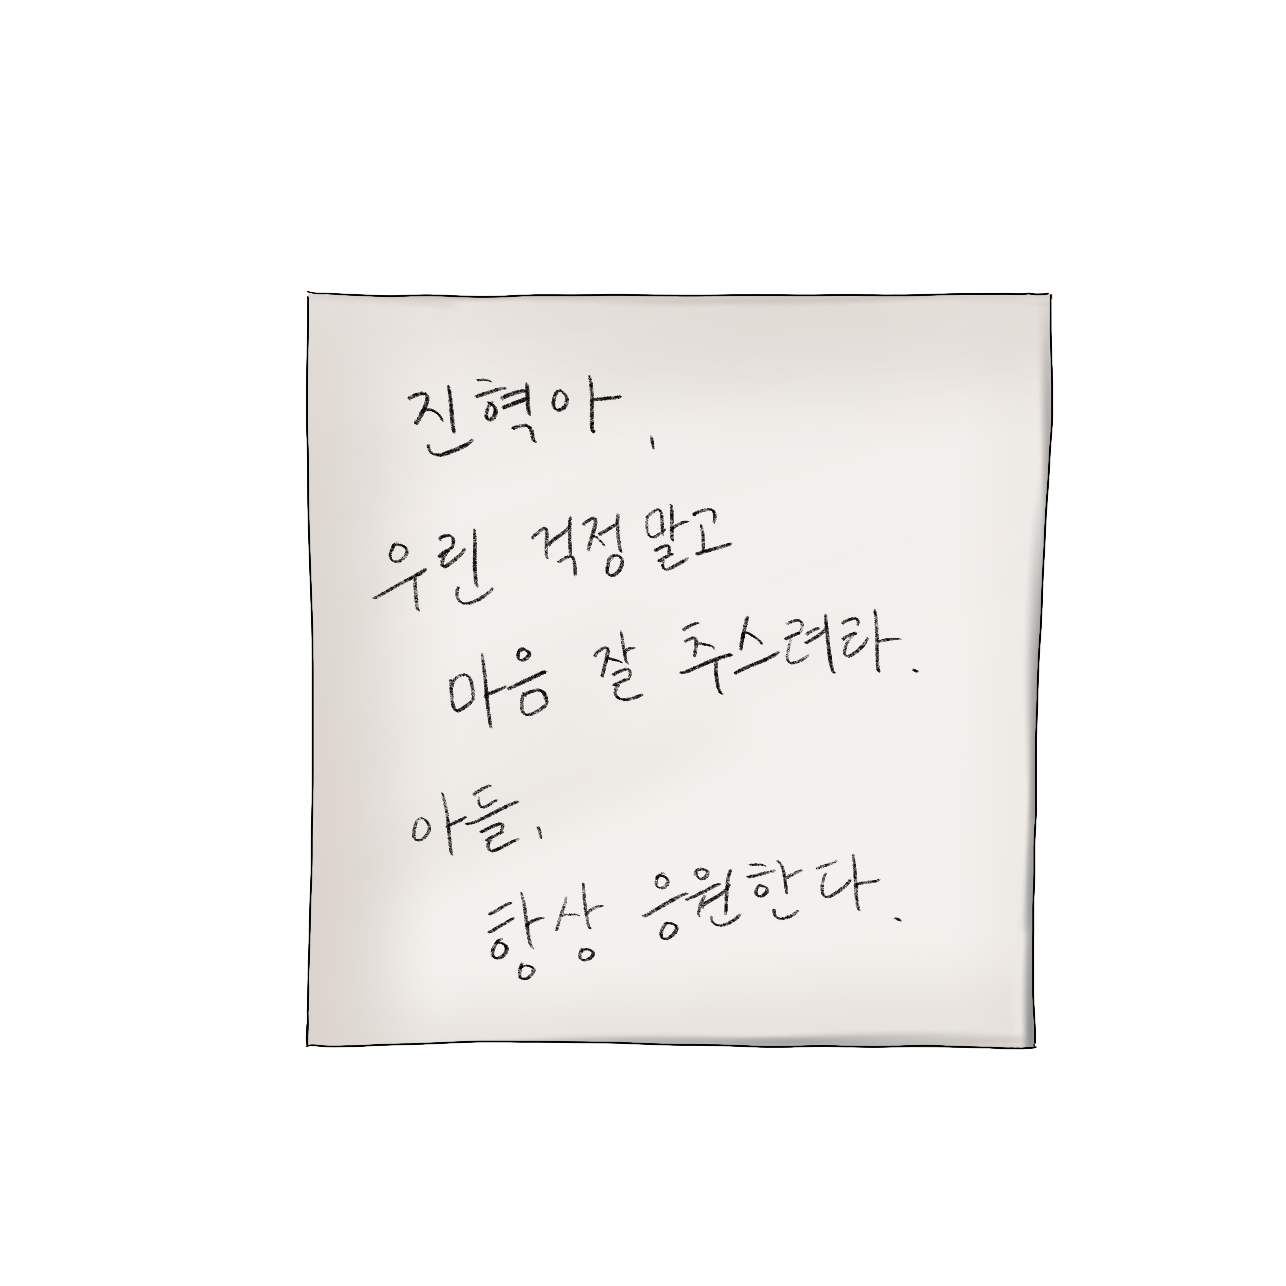 진혁아,
우린 걱정말고
마음 잘 추스려라.
아들,
항상 응원한다.